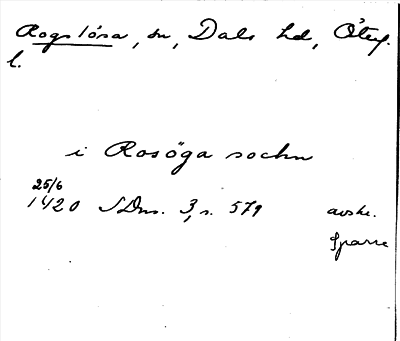 Rogslösa, sn, Dals hd, Östergl.
i Rosöga sochn
25/6
1420 SDns. 3, s. 579 avskr.
Sparre